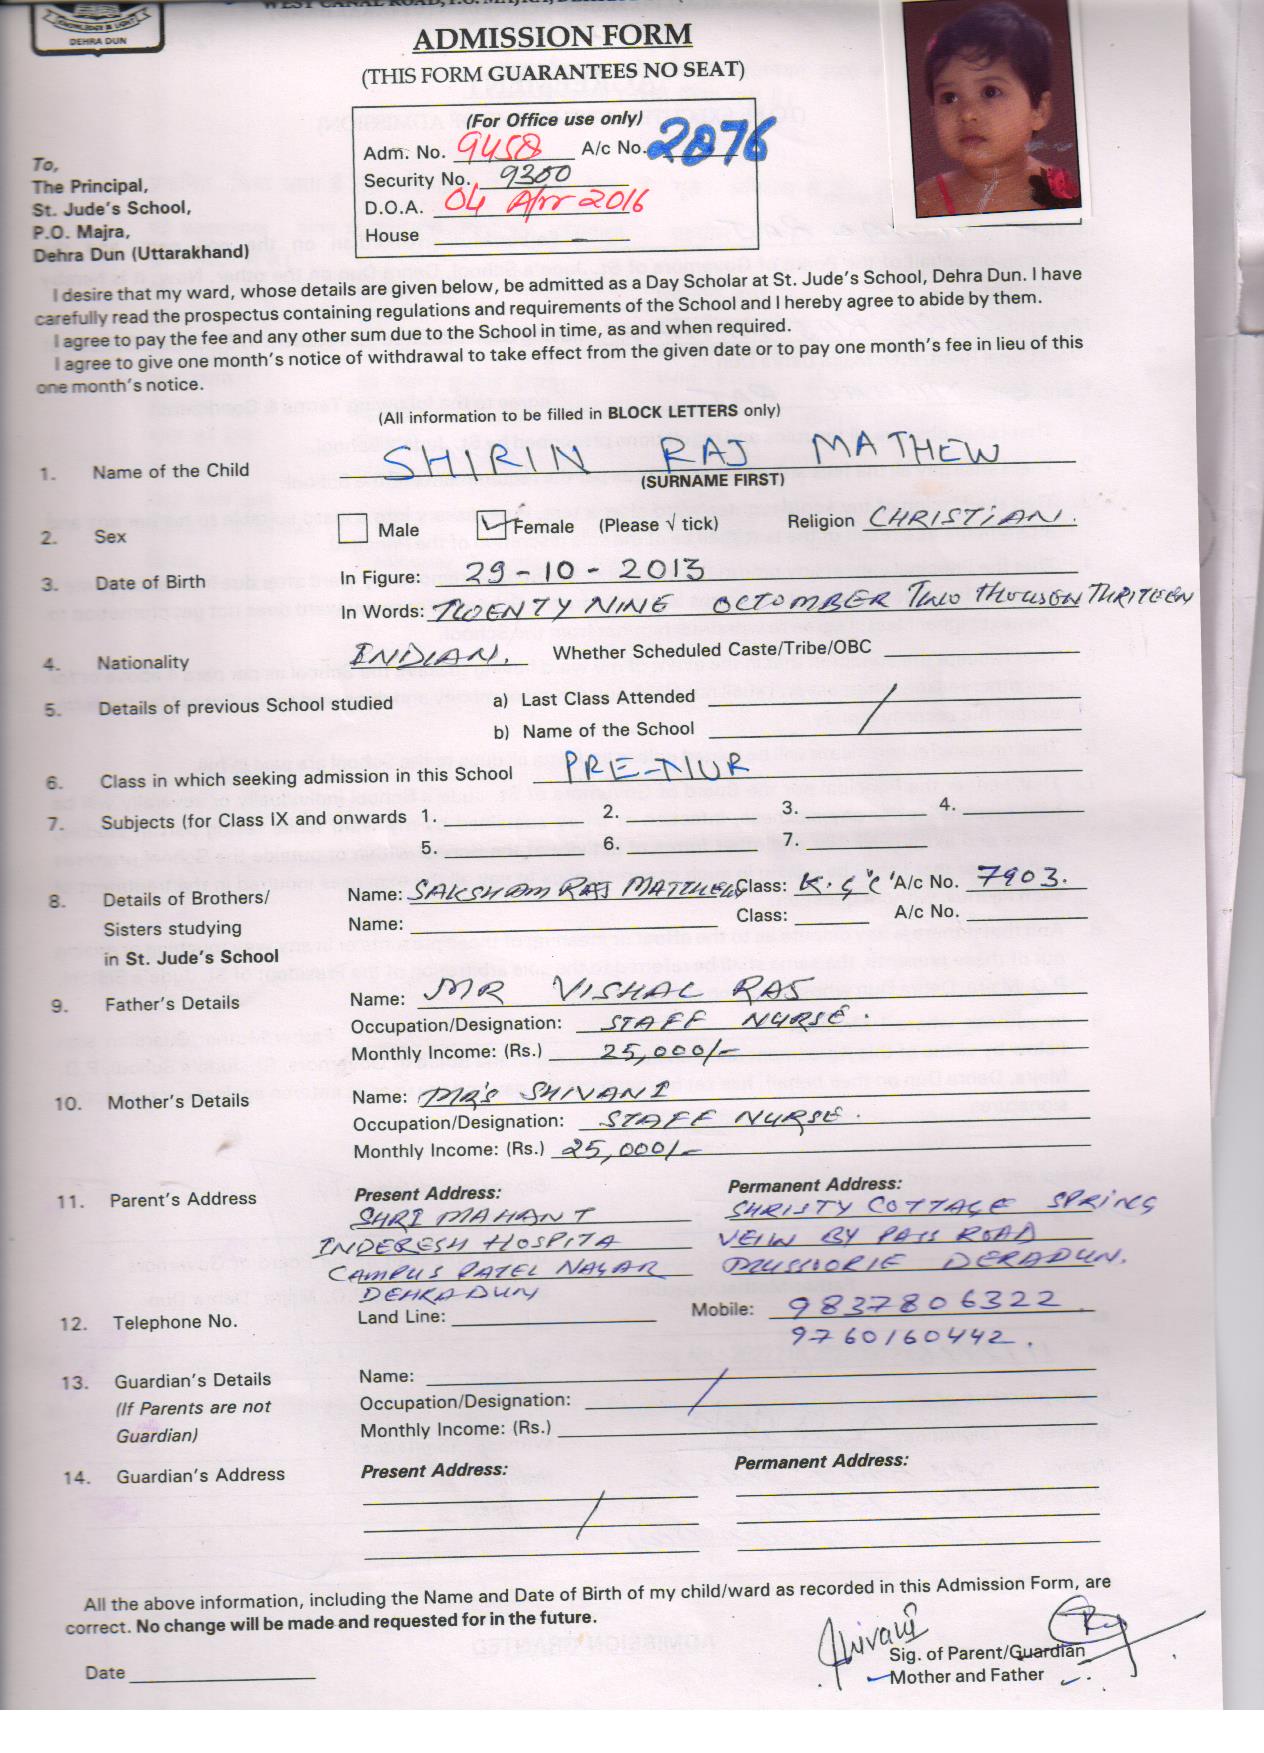 KNOWLEDGE & LIGHT
DEHRA DUN
ADMISSION FORM
(THIS FORM GUARANTEES NO SEAT)
(For Office use only)
Adm. No. 9458 A/c No. 2076
Security No. 9300
D.O.A. 04 Apr 2016
House –
To,
The Principal,
St. Jude's School,
P.O. Majra,
Dehra Dun (Uttarakhand)
I desire that my ward, whose details are given below, be admitted as a Day Scholar at St. Jude's School, Dehra Dun. I have
carefully read the prospectus containing regulations and requirements of the School and I hereby agree to abide by them.
I agree to pay the fee and any other sum due to the School in time, as and when required.
I agree to give one month's notice of withdrawal to take effect from the given date or to pay one month's fee in lieu of this
one month's notice.
(All information to be filled in BLOCK LETTERS only)
1. Name of the Child SHIRIN RAJ MATHEW
(SURNAME FIRST)
2. Sex Male Female (Please √ tick) Religion CHRISTIAN.
3. Date of Birth In Figure: 29-10-2013
In Words: TWENTY NINE OCTOMBER TWO THOUSEN THRITEEN
4. Nationality INDIAN. Whether Scheduled Caste/Tribe/OBC
5. Details of previous School studied a) Last Class Attended
b) Name of the School
6. Class in which seeking admission in this School PRE-NUR
7. Subjects (for Class IX and onwards 1. 2. 3. 4.
5. 6. 7.
8. Details of Brothers/ Name: SAKSHAM RAJ MATTHEW Class: K.G "C" A/c No. 7903.
Sisters studying Name: Class: A/c No.
in St. Jude's School
9. Father's Details Name: MR VISHAL RAJ
Occupation/Designation: STAFF NURSE.
Monthly Income: (Rs.) 25,000/-
10. Mother's Details Name: MR'S SHIVANI
Occupation/Designation: STAFF NURSE.
Monthly Income: (Rs.) 25,000/-
11. Parent's Address Present Address: Permanent Address:
SHRI MAHANT SHRISTY COTTAGE SPRING
INDERESH HOSPITA VEIW BY PASS ROAD
CAMPUS PATEL NAGAR MUSSOORIE DERADUN.
DEHRADUN
12. Telephone No. Land Line: Mobile: 9837806322
9760160442.
13. Guardian's Details Name:
(If Parents are not Occupation/Designation:
Guardian) Monthly Income: (Rs.)
14. Guardian's Address Present Address: Permanent Address:
All the above information, including the Name and Date of Birth of my child/ward as recorded in this Admission Form, are
correct. No change will be made and requested for in the future.
Shivani
Sig. of Parent/Guardian
Date Mother and Father